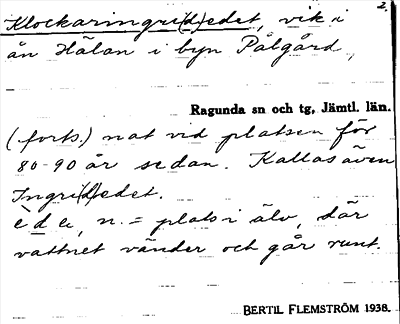 2.
Klockaringri(d)edet, vik i
ån Hälan i byn Pålgård,
Ragunda sn och tg, Jämtl. län.
(forts.) nat vid platsen för
80-90 år sedan. Kallas även
Ingri(d)edet.
ede, n. = plats i älv, där
vattnet vänder och går runt.
BERTIL FLEMSTRÖM 1938.